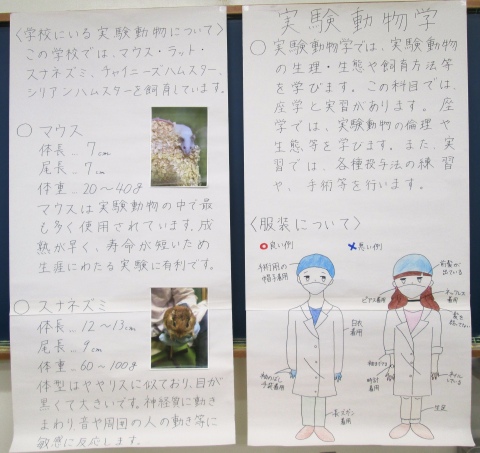 〈学校にいる実験動物について〉
この学校では、マウス・ラット・
スナネズミ、チャイニーズハムスター、
シリアンハムスターを飼育しています。
○ マウス
体長… 7cm
尾長… 7cm
体重… 20〜40g
マウスは実験動物の中で最
も多く使用されています。成
熟が早く、寿命が短いため
生涯にわたる実験に有利です。
○ スナネズミ
体長… 12〜13cm
尾長… 9cm
体重… 60〜100g
体型はややリスに似ており、目が
黒くて大きいです。神経質に動き
まわり、音や周囲の人の動き等に
敏感に反応します。
実験動物学
○ 実験動物学では、実験動物
の生理・生態や飼育方法等
を学びます。この科目では、
座学と実習があります。座
学では、実験動物の倫理や
生態等を学びます。また、実
習では、各種投与法の練習
や、手術等を行います。
〈服装について〉
○良い例
×悪い例
手術用の
帽子着用
白衣
着用
手袋着用
長ズボン
着用
前髪が
出ている
ピアス着用
ネックレス
着用
髪を
時計
着用
ネイル
している
生足